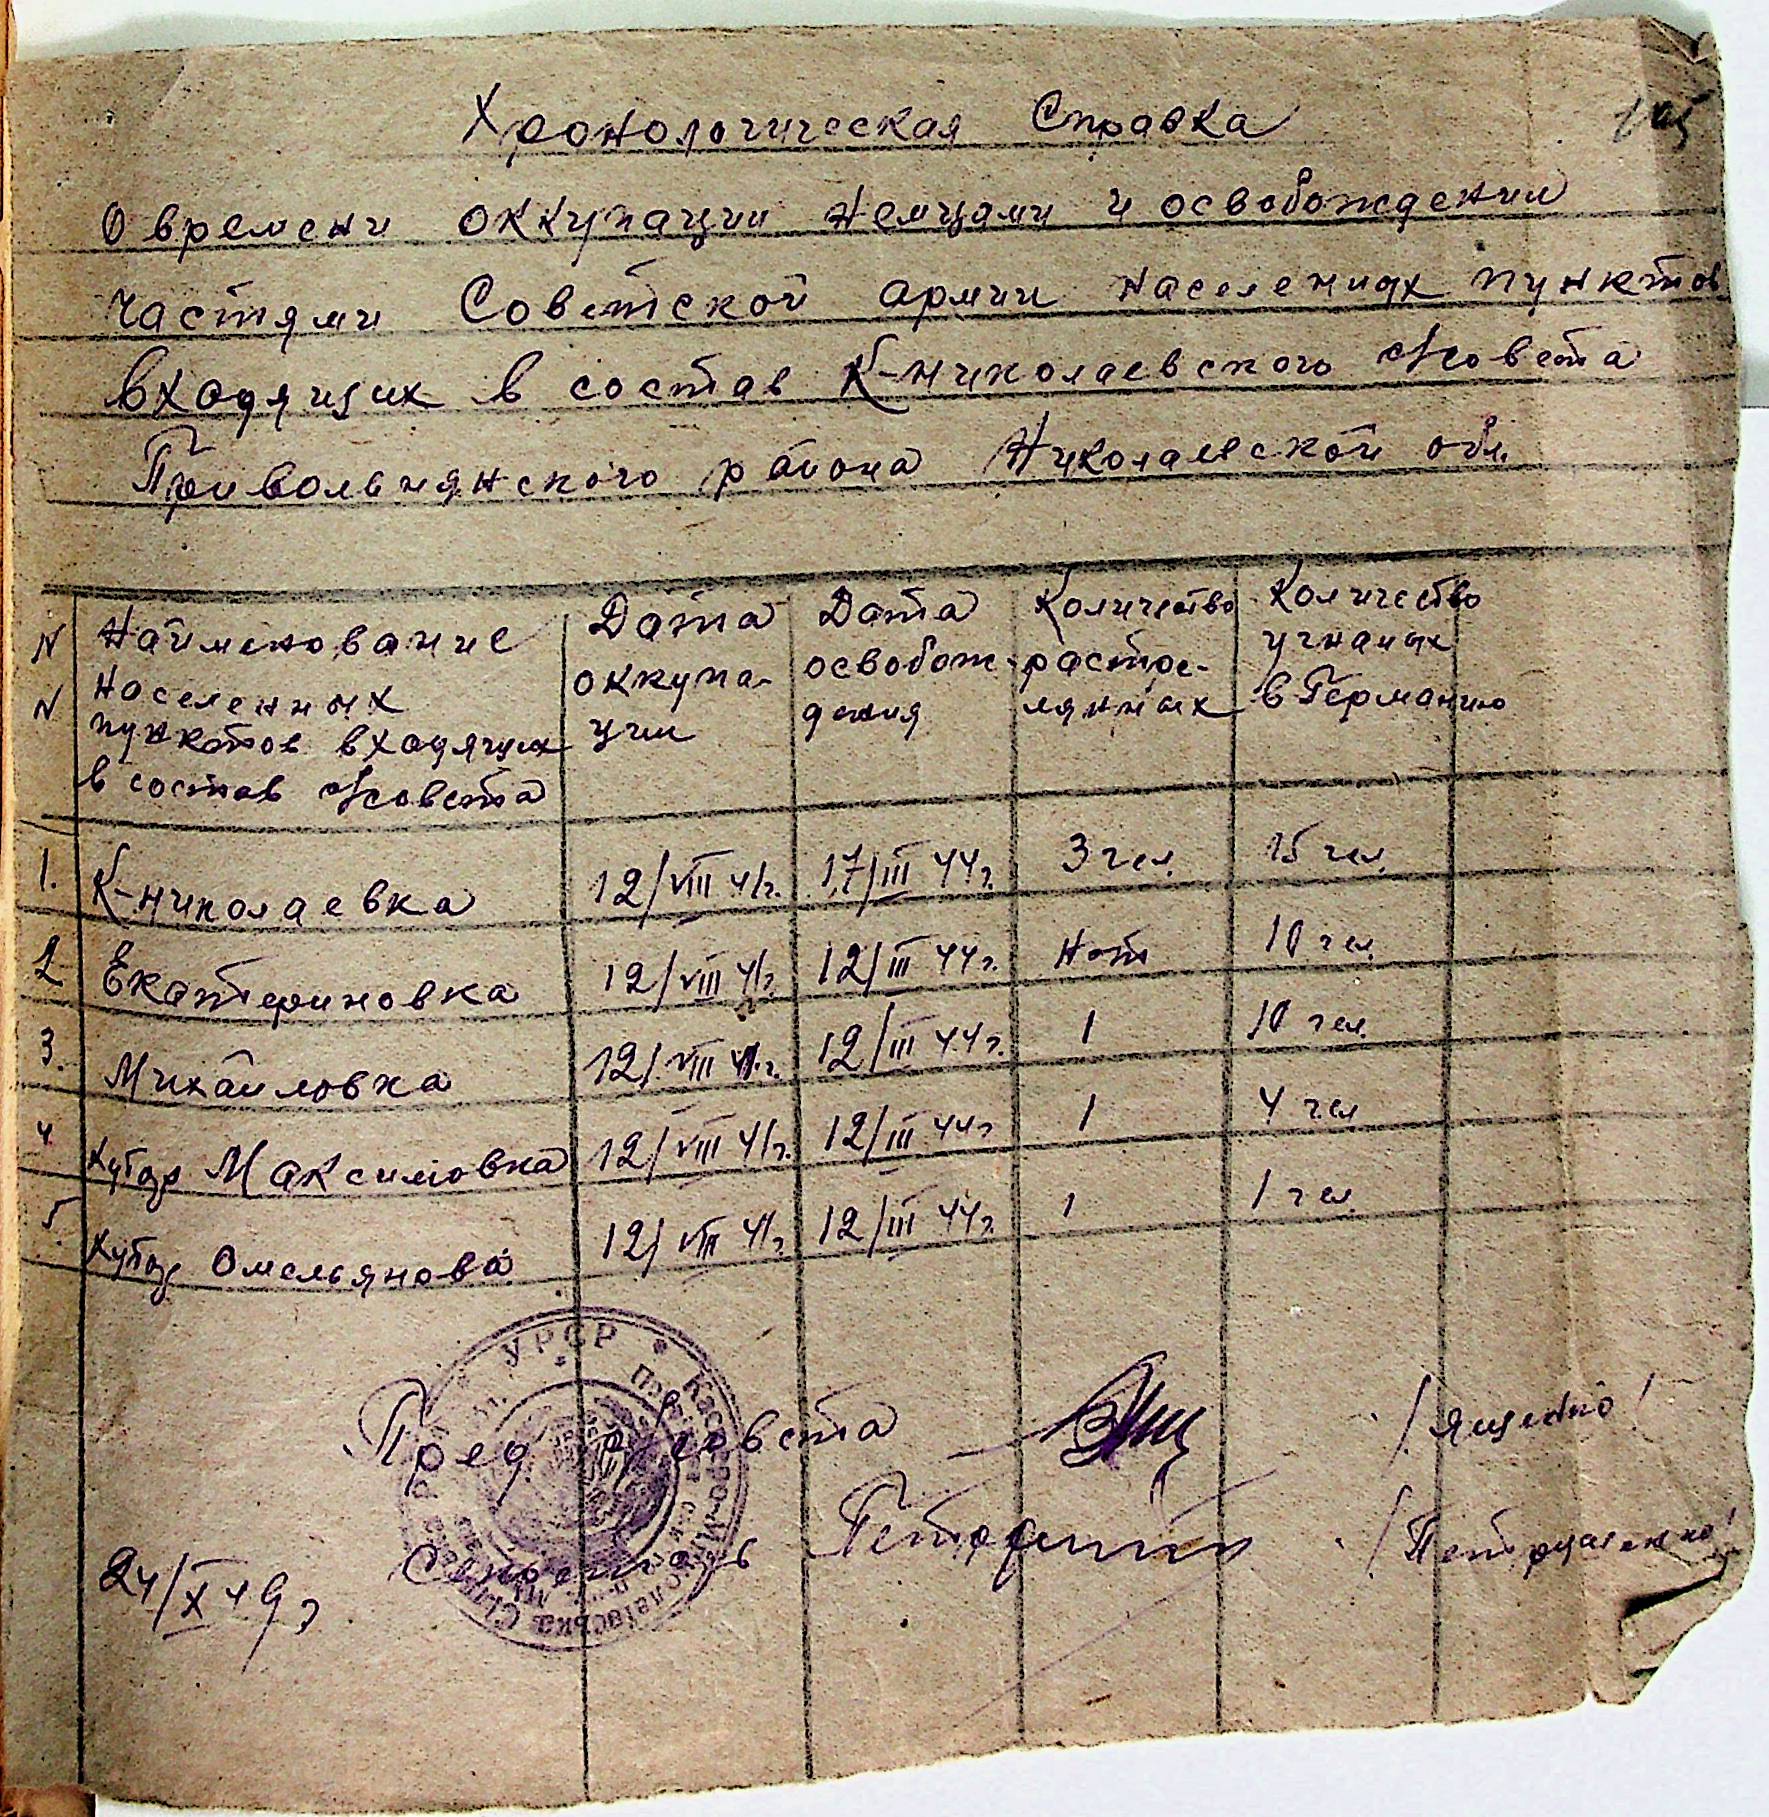 Хронологическая Справка
105
О времени оккупации немцами и освобождении
частями Советской армии населених пунктов
входящих в состав К-николаевского с/совета
Привольнянского района Николаевской обл.
N N Наименование населенных пунктов входящих в состав с/совета | Дата оккупации | Дата освобождения | Количество растрелянных | Количество угнаных в Германию
1. К-николаевка 12/VIII 41г. 17/III 44г. 3 чел. 15 чел.
2 Екатериновка 12/VIII 41г. 12/III 44г. нет 10 чел.
3. Михайловка 12/VIII 41.г. 12/III 44г. 1 10 чел.
4. хутор Максимовка 12/VIII 41г. 12/III 44г 1 4 чел
5. хутор Омельянова 12/VIII 41г. 12/III 44г. 1 1 чел.
УРСР
Касперо-Миколаївська Сільська Рада
Пред. с/совета /Ященко/
Секретарь /Петрушенко/
24/X 49г